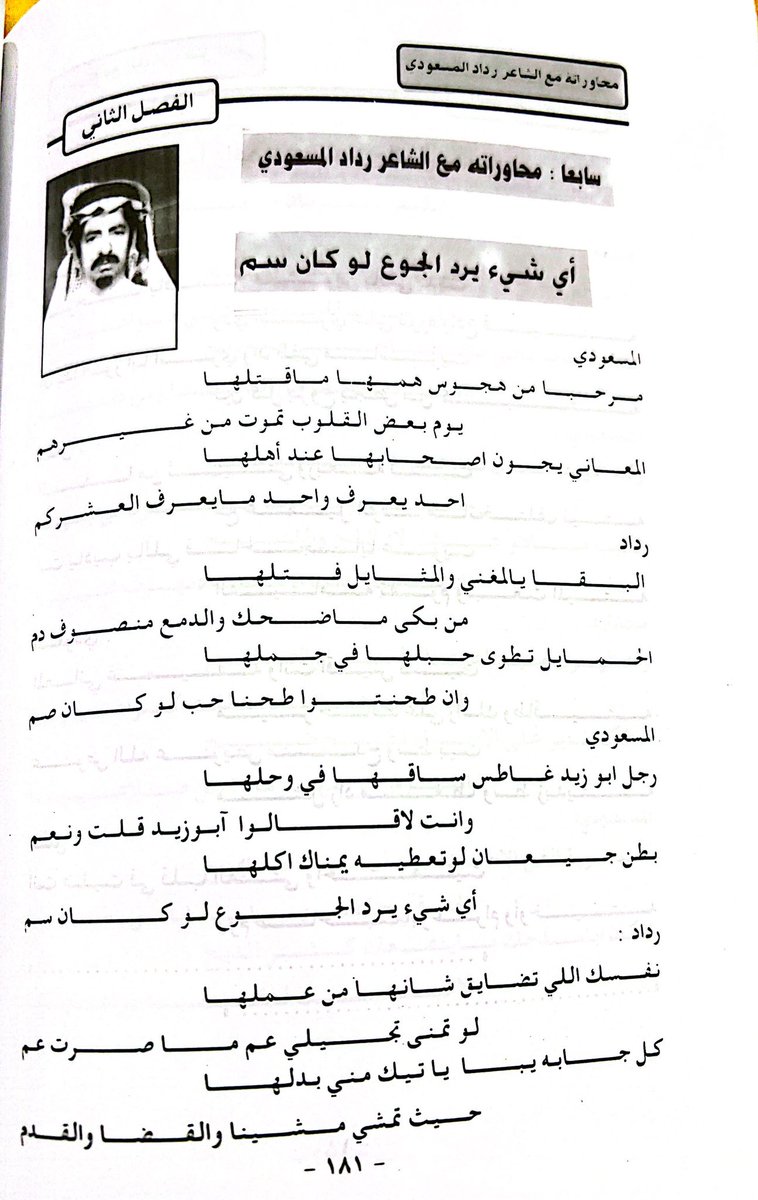 محاوراته مع الشاعر رداد المسعودي
الفصل الثاني
سابعا : محاوراته مع الشاعر رداد المسعودي
أي شيء يرد الجوع لو كان سم
المسعودي
مرحبا من هجوس همها ماقتلها
يوم بعض القلوب تموت من غيرهم
المعاني يجون اصحابها عند أهلها
احد يعرف واحد مايعرف العشركم
رداد
البقا يالمغني والمثايل فتلها
من بكى ماضحك والدمع منصوف دم
الحمايل تطوى حبلها في جملها
وان طحنتوا طحنا حب لو كان صم
المسعودي
رجل ابو زيد غاطس ساقها في وحلها
وانت لاقالوا آبوزيد قلت ونعم
بطن جيعان لوتعطيه يمناك اكلها
أي شيء يرد الجوع لو كان سم
رداد :
نفسك اللي تضايق شانها من عملها
لو تمنى تجيلي عم ما صرت عم
كل جابه يبا يا تيك مني بدلها
حيث تمشي مشينا والقضا والقدم
- ١٨١ -